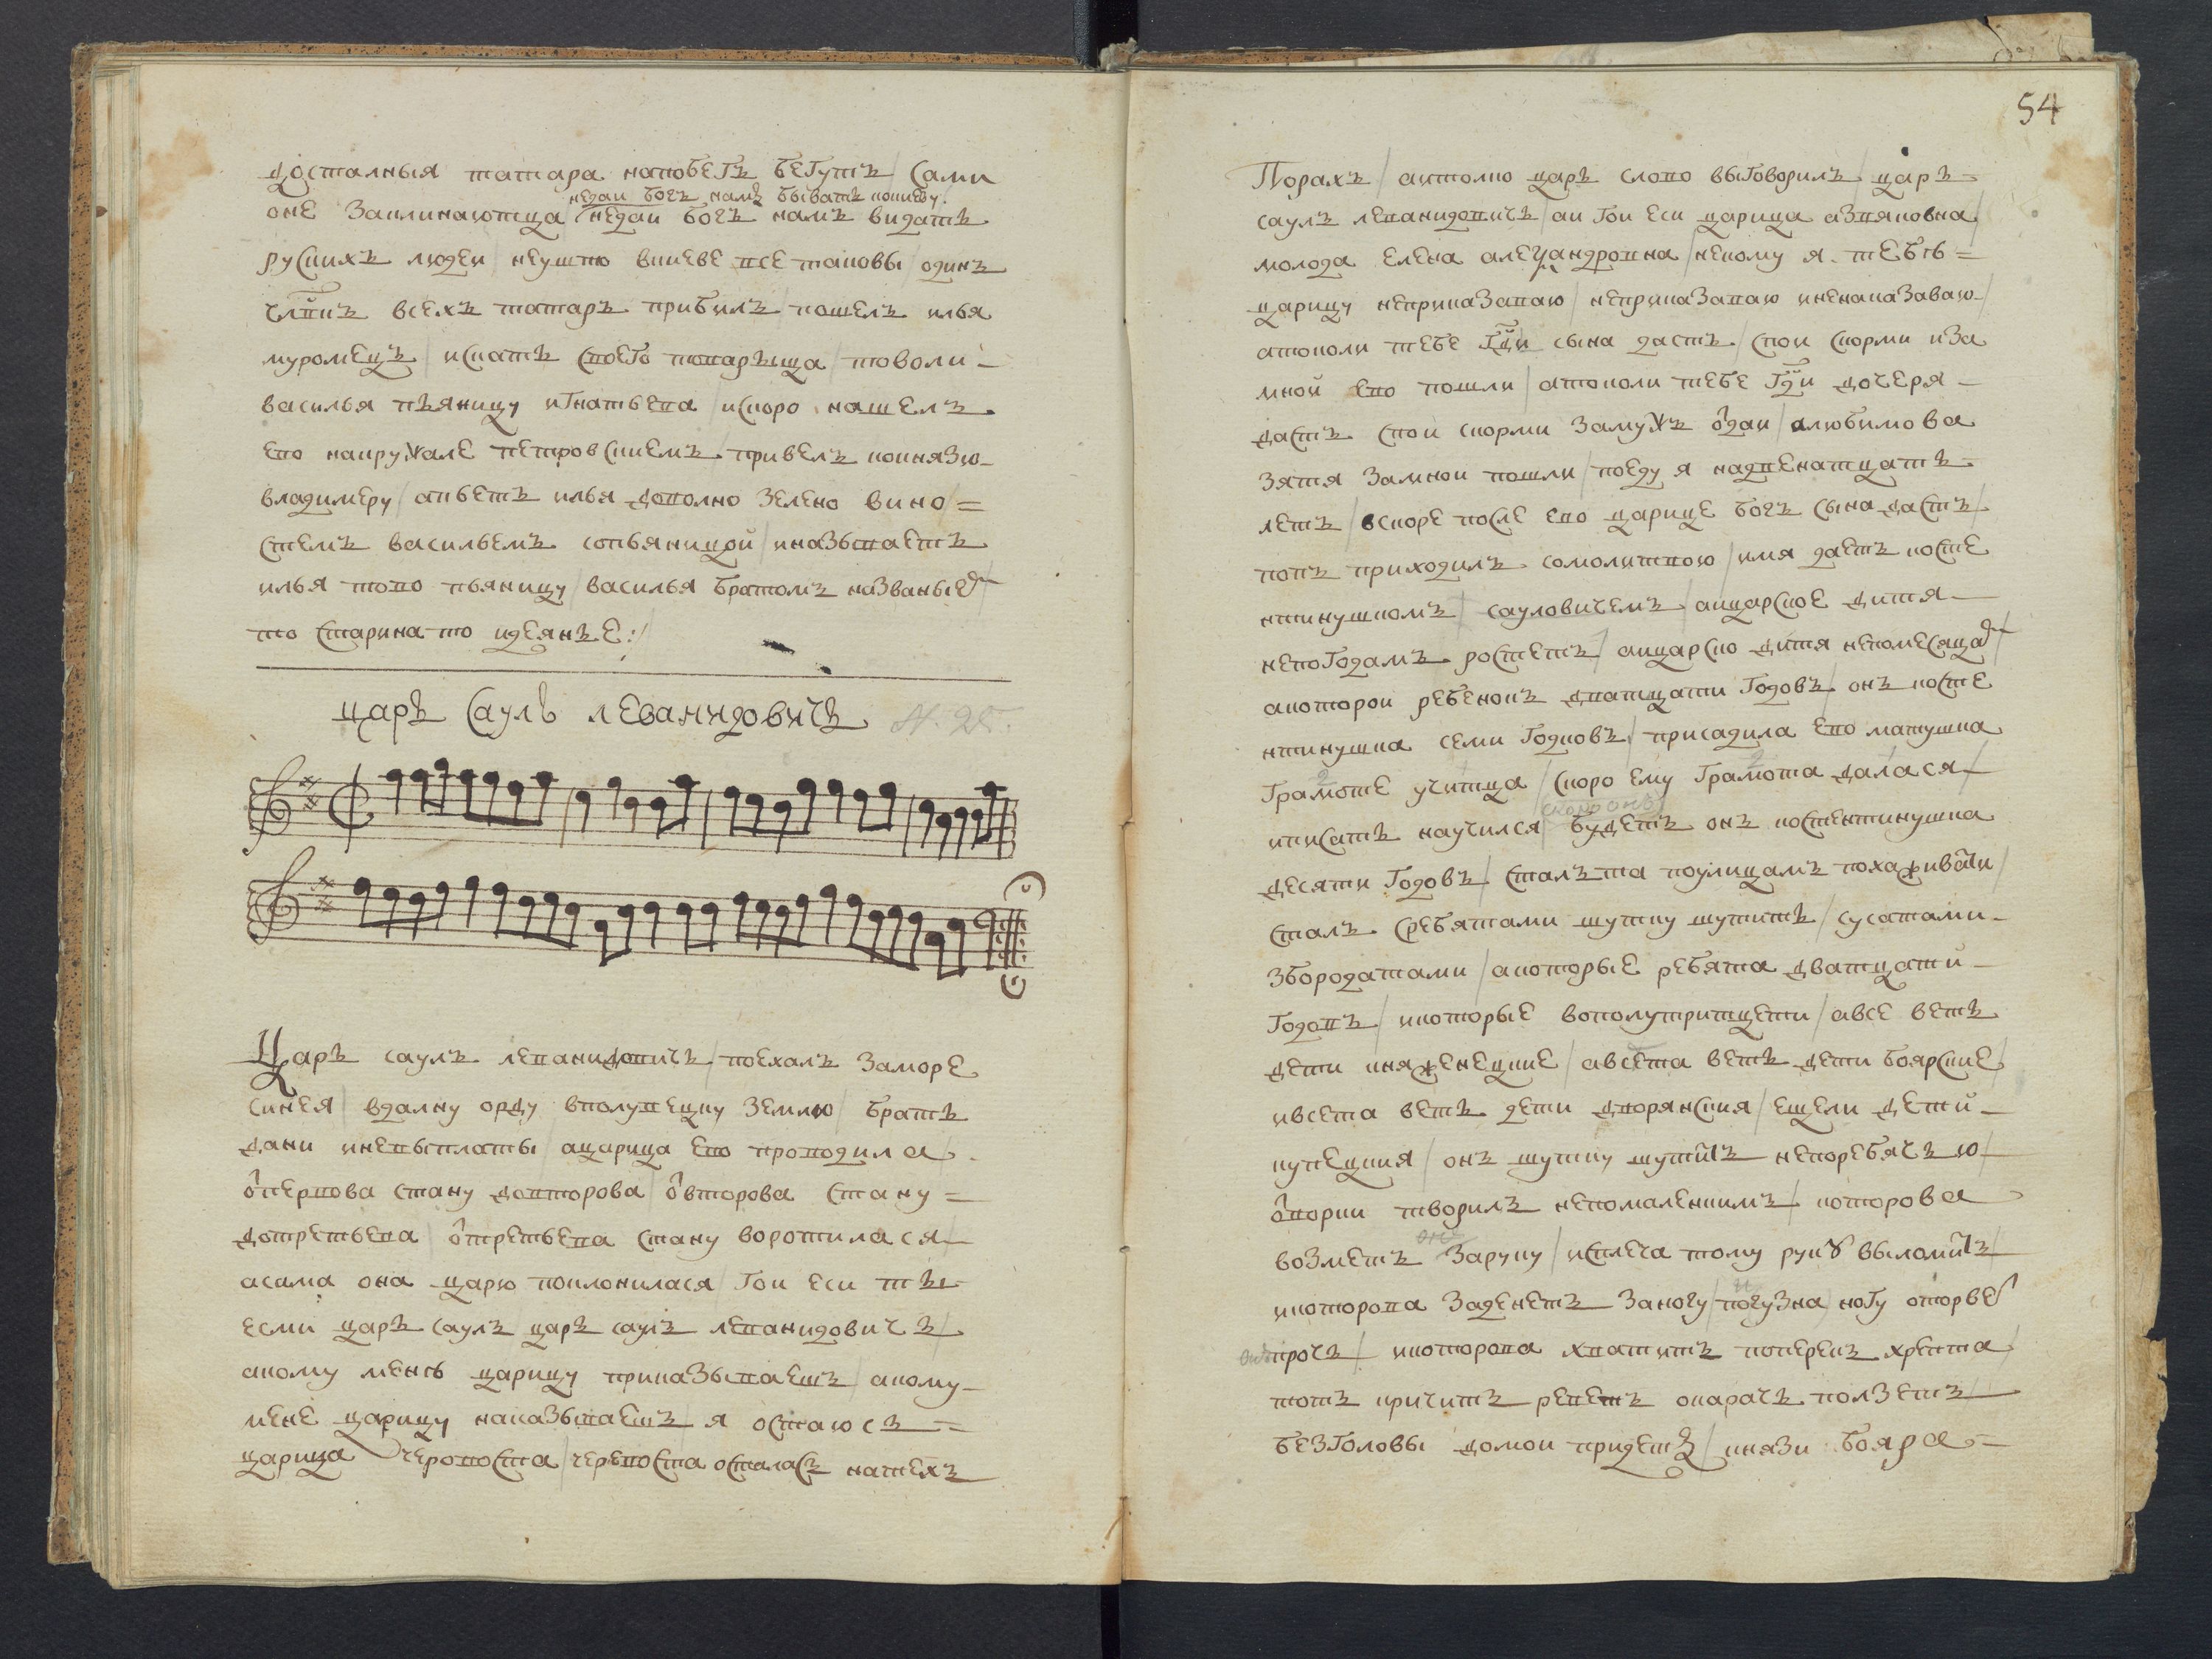 досталныя татара напобегъ бегутъ / сами
недаи богъ намъ бывать покиеву /
оне заклинаютца / недаи богъ намъ видать
рускихъ людеи / неушто вкиеве все таковы / одинъ
члвкъ всехъ татаръ прибилъ / пошелъ илья
муромецъ / искать своего товарыща / товоли –
василья пьяницу игнатьева / искоро нашелъ
ево накружале петровскиемъ привелъ ккнязю
владимеру / апьетъ илья доволно зелено вино =
стемъ васильемъ сопьяницои / иназываетъ
илья тово пьяницу / василья братомъ названые
то старина то идеянье :/
царь Саулъ леванидовичь N. 25.
Царь саулъ леванидовичь / поехалъ заморе
синея / вдалну орду вполувецку землю / брать
дани иневыплаты / ацарица ево проводила
ѿпервова стану довторова / ѿвторова стану =
дотретьева / ѿтретьева стану воротилася /
асама она царю поклонилася / гои еси ты
есми царь саулъ / царь саулъ леванидовичь /
акому мень царицу приказываешъ / акому –
мене царицу наказываешъ / я остаюсъ =
царица черовоста / черевоста осталасъ натехъ
54
Порахъ / аитолко царь слово выговорилъ / царь =
саулъ леванидовичь / аи гои еси царица азвяковна /
молода елена александровна / некому я тебѣ =
царицу неприказаваю / неприказаваю иненаказаваю /
атоколи тебе гдь сына дастъ / вскои скорми иза
мнои ево пошли / атоколи тебе гдь дочеря –
дастъ вскои скорми замужъ ѿдаи / алюбимова
зятя замнои пошли / поеду я надвенатцать
летъ / вскоре после ево царице богъ сына дастъ /
попъ приходилъ сомолитвою / имя даетъ косте
нтинушкомъ / сауловичемъ / аицарское дитя –
непогодамъ ростетъ / аицарско дитя непомесяца /
акоторои ребенокъ дватцати годовъ / онъ косте
нтинушка семи годковъ / присадила ево матушка
грамоте учитца / скоро ему грамота далася /
иписать научился / будетъ онъ костентинушка
десяти годовъ / сталъта поулицамъ похаживати /
сталъ сребятами шутку шутить / сусатами –
збородатами / акоторые ребята дватцати –
годовъ / икоторые вополутритцети / авсе веть
дети княженецкие / авсета веть дети боярские /
ивсета веть дети дворянския / ещели дети –
купецкия / онъ шутку шутитъ неповребячью /
ѿворки творилъ непомаленкимъ / которова
возметъ заруку / исплеча тому руку выломитъ /
икоторова заденетъ заногу / погузна ногу оторве
прочь / икоторова хватитъ поперекъ хрепта /
тотъ кричитъ реветъ окарачь ползетъ /
безголовы домои придетъ / князи бояра =